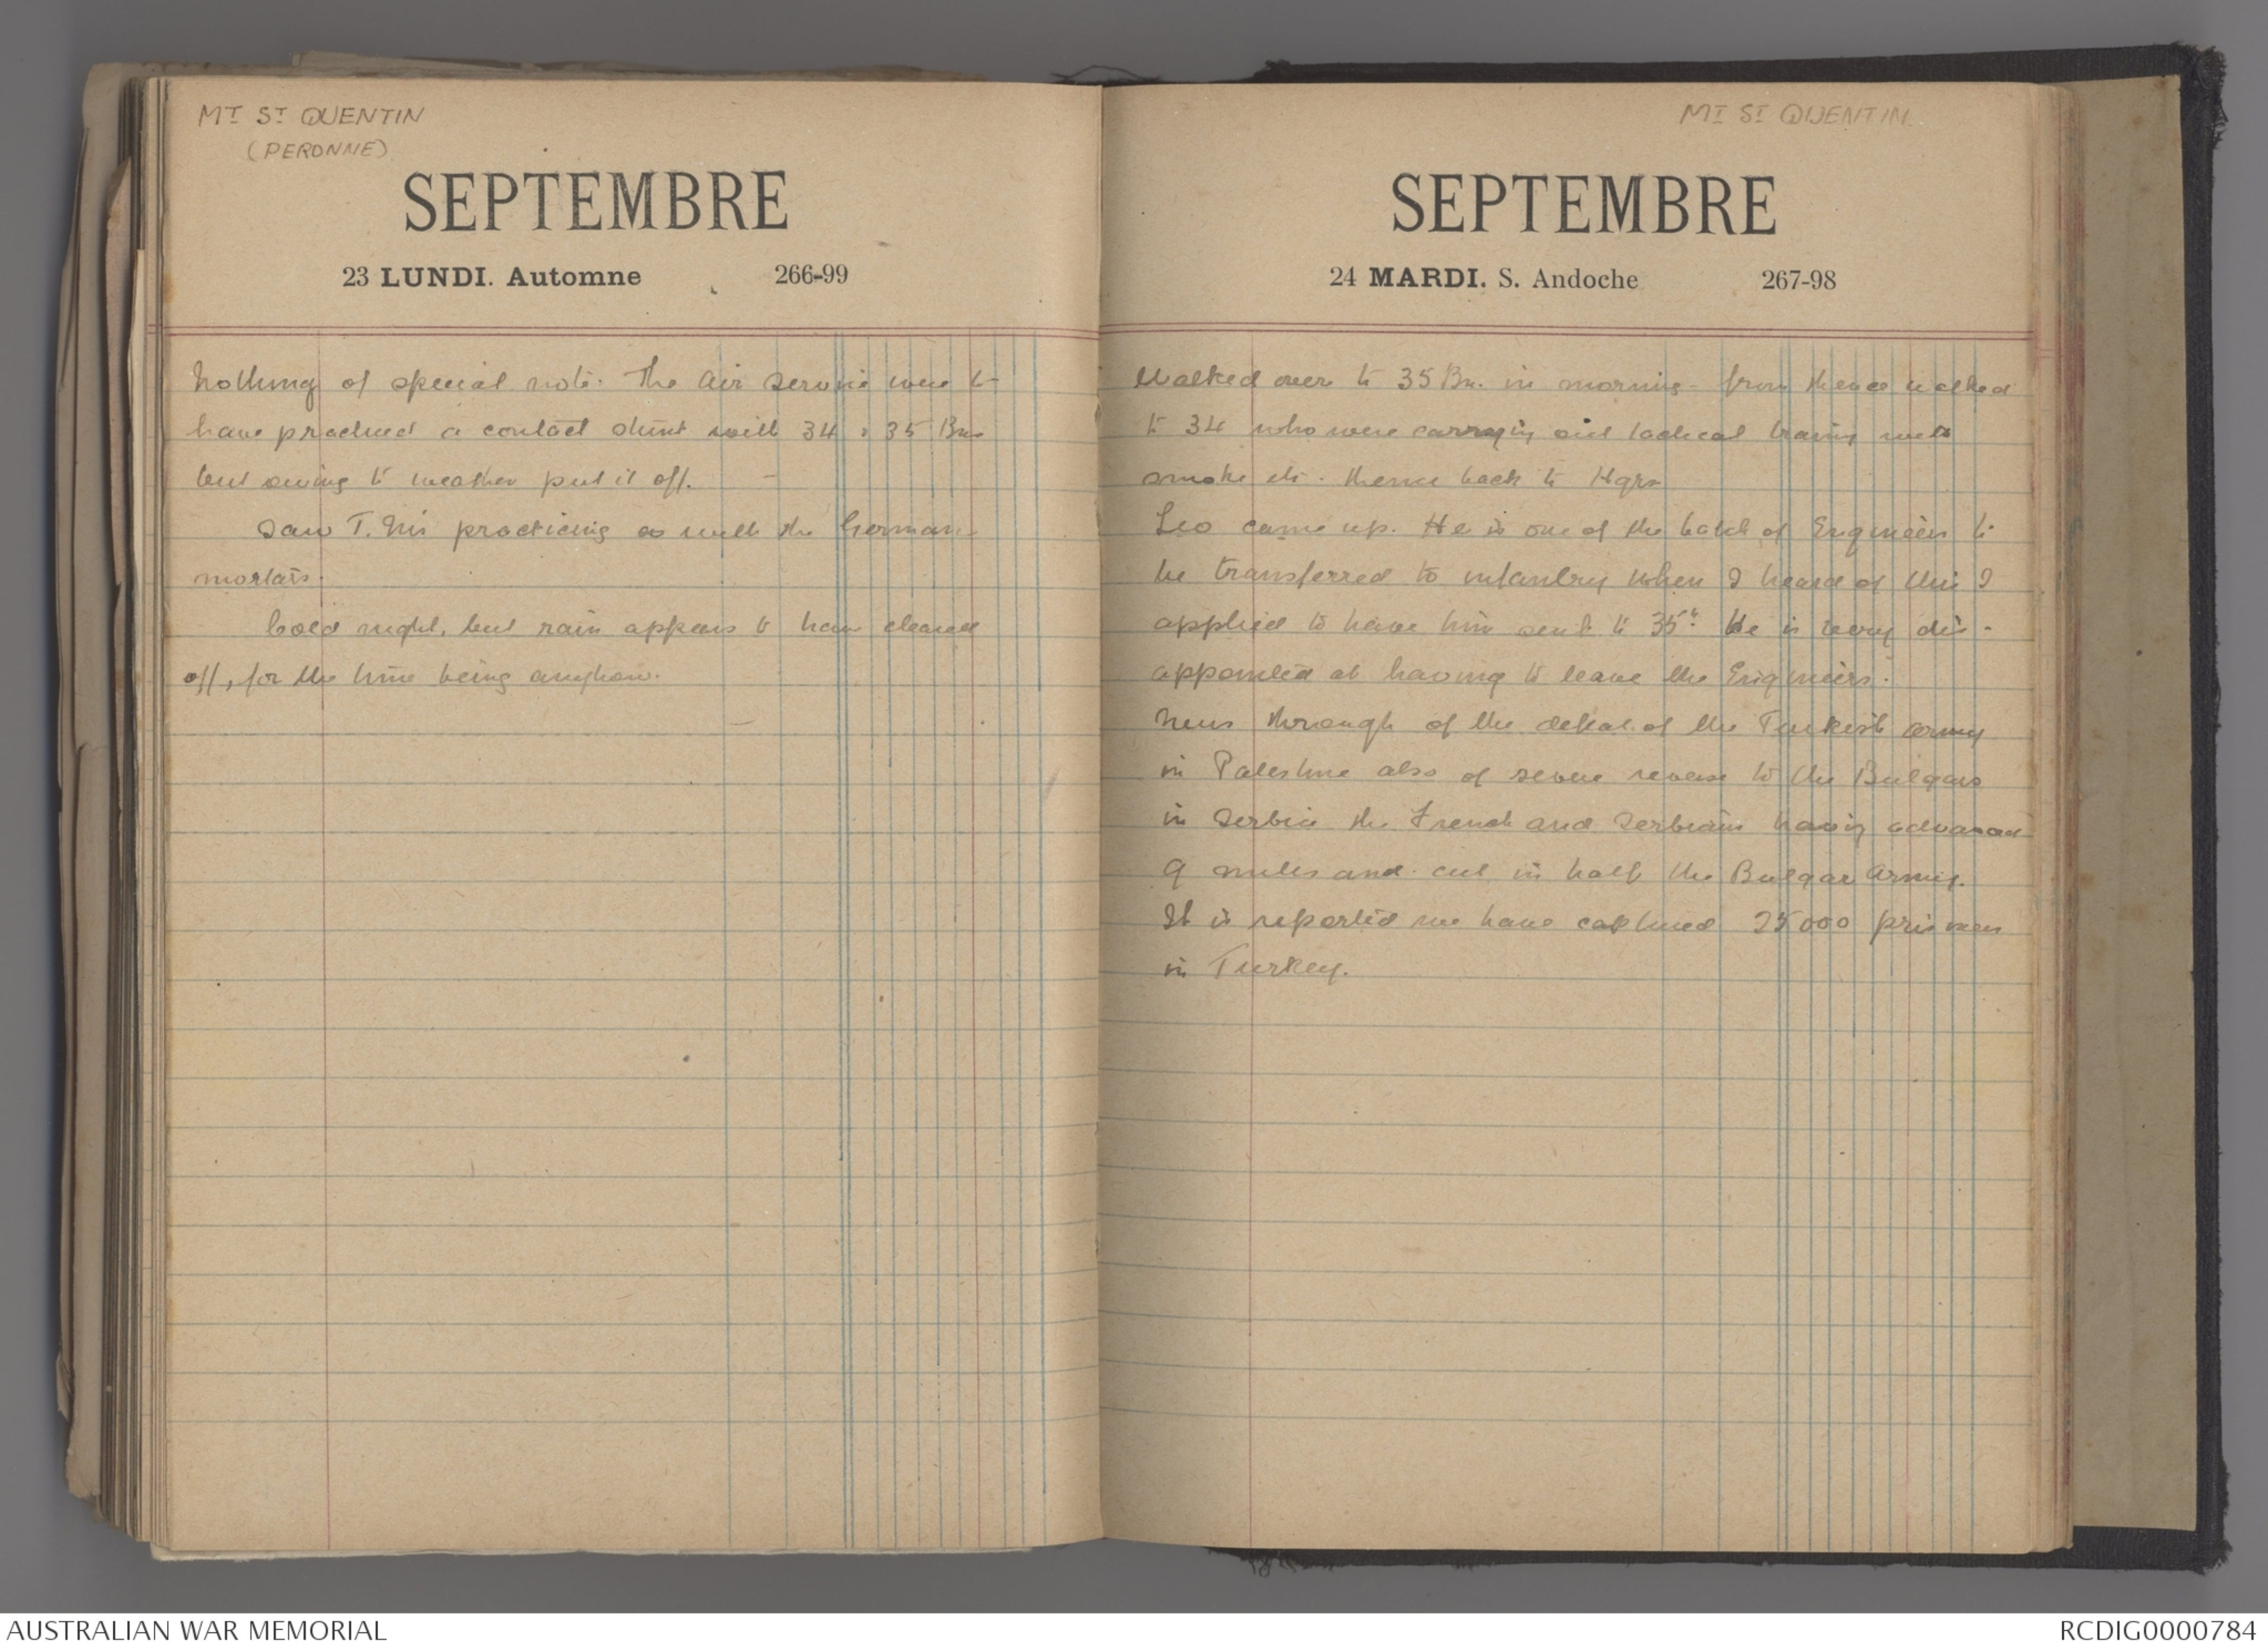 MT ST QUENTIN
(PERONNE)
SEPTEMBRE
23 LUNDI. Automne 266-99
Nothing of special note. The Air Service were to
have practiced a contact stunt with 34 & 35 Bns
but owing to weather put it off. -
Saw T. Ms practicing as with the German
mortars.
Cold night, but rain appears to have cleared
off, for the time being anyhow.
MT ST QUENTIN
SEPTEMBRE
24 MARDI. S. Andoche 267-98
Walked over to 35 Bn. in morning - from thence walked
to 34 who were carrying out tactical traing with
smoke etc. thence back to Hqrs
Leo came up. He is one of the batch of Engineers to
be transferred to infantry when I heard of this I
applied to have him sent to 35th. He is very dis-
appointed at having to leave the Engineers.
News through of the defeat of the Turkish army
in Palestine also of severe reverse to the Bulgars
in Serbia the French and Serbians having advanced
9 miles and cut in half the Bulgar Army.
It is reported we have captured 25000 prisoners
in Turkey.
AUSTRALIAN WAR MEMORIAL
RCDIG0000784